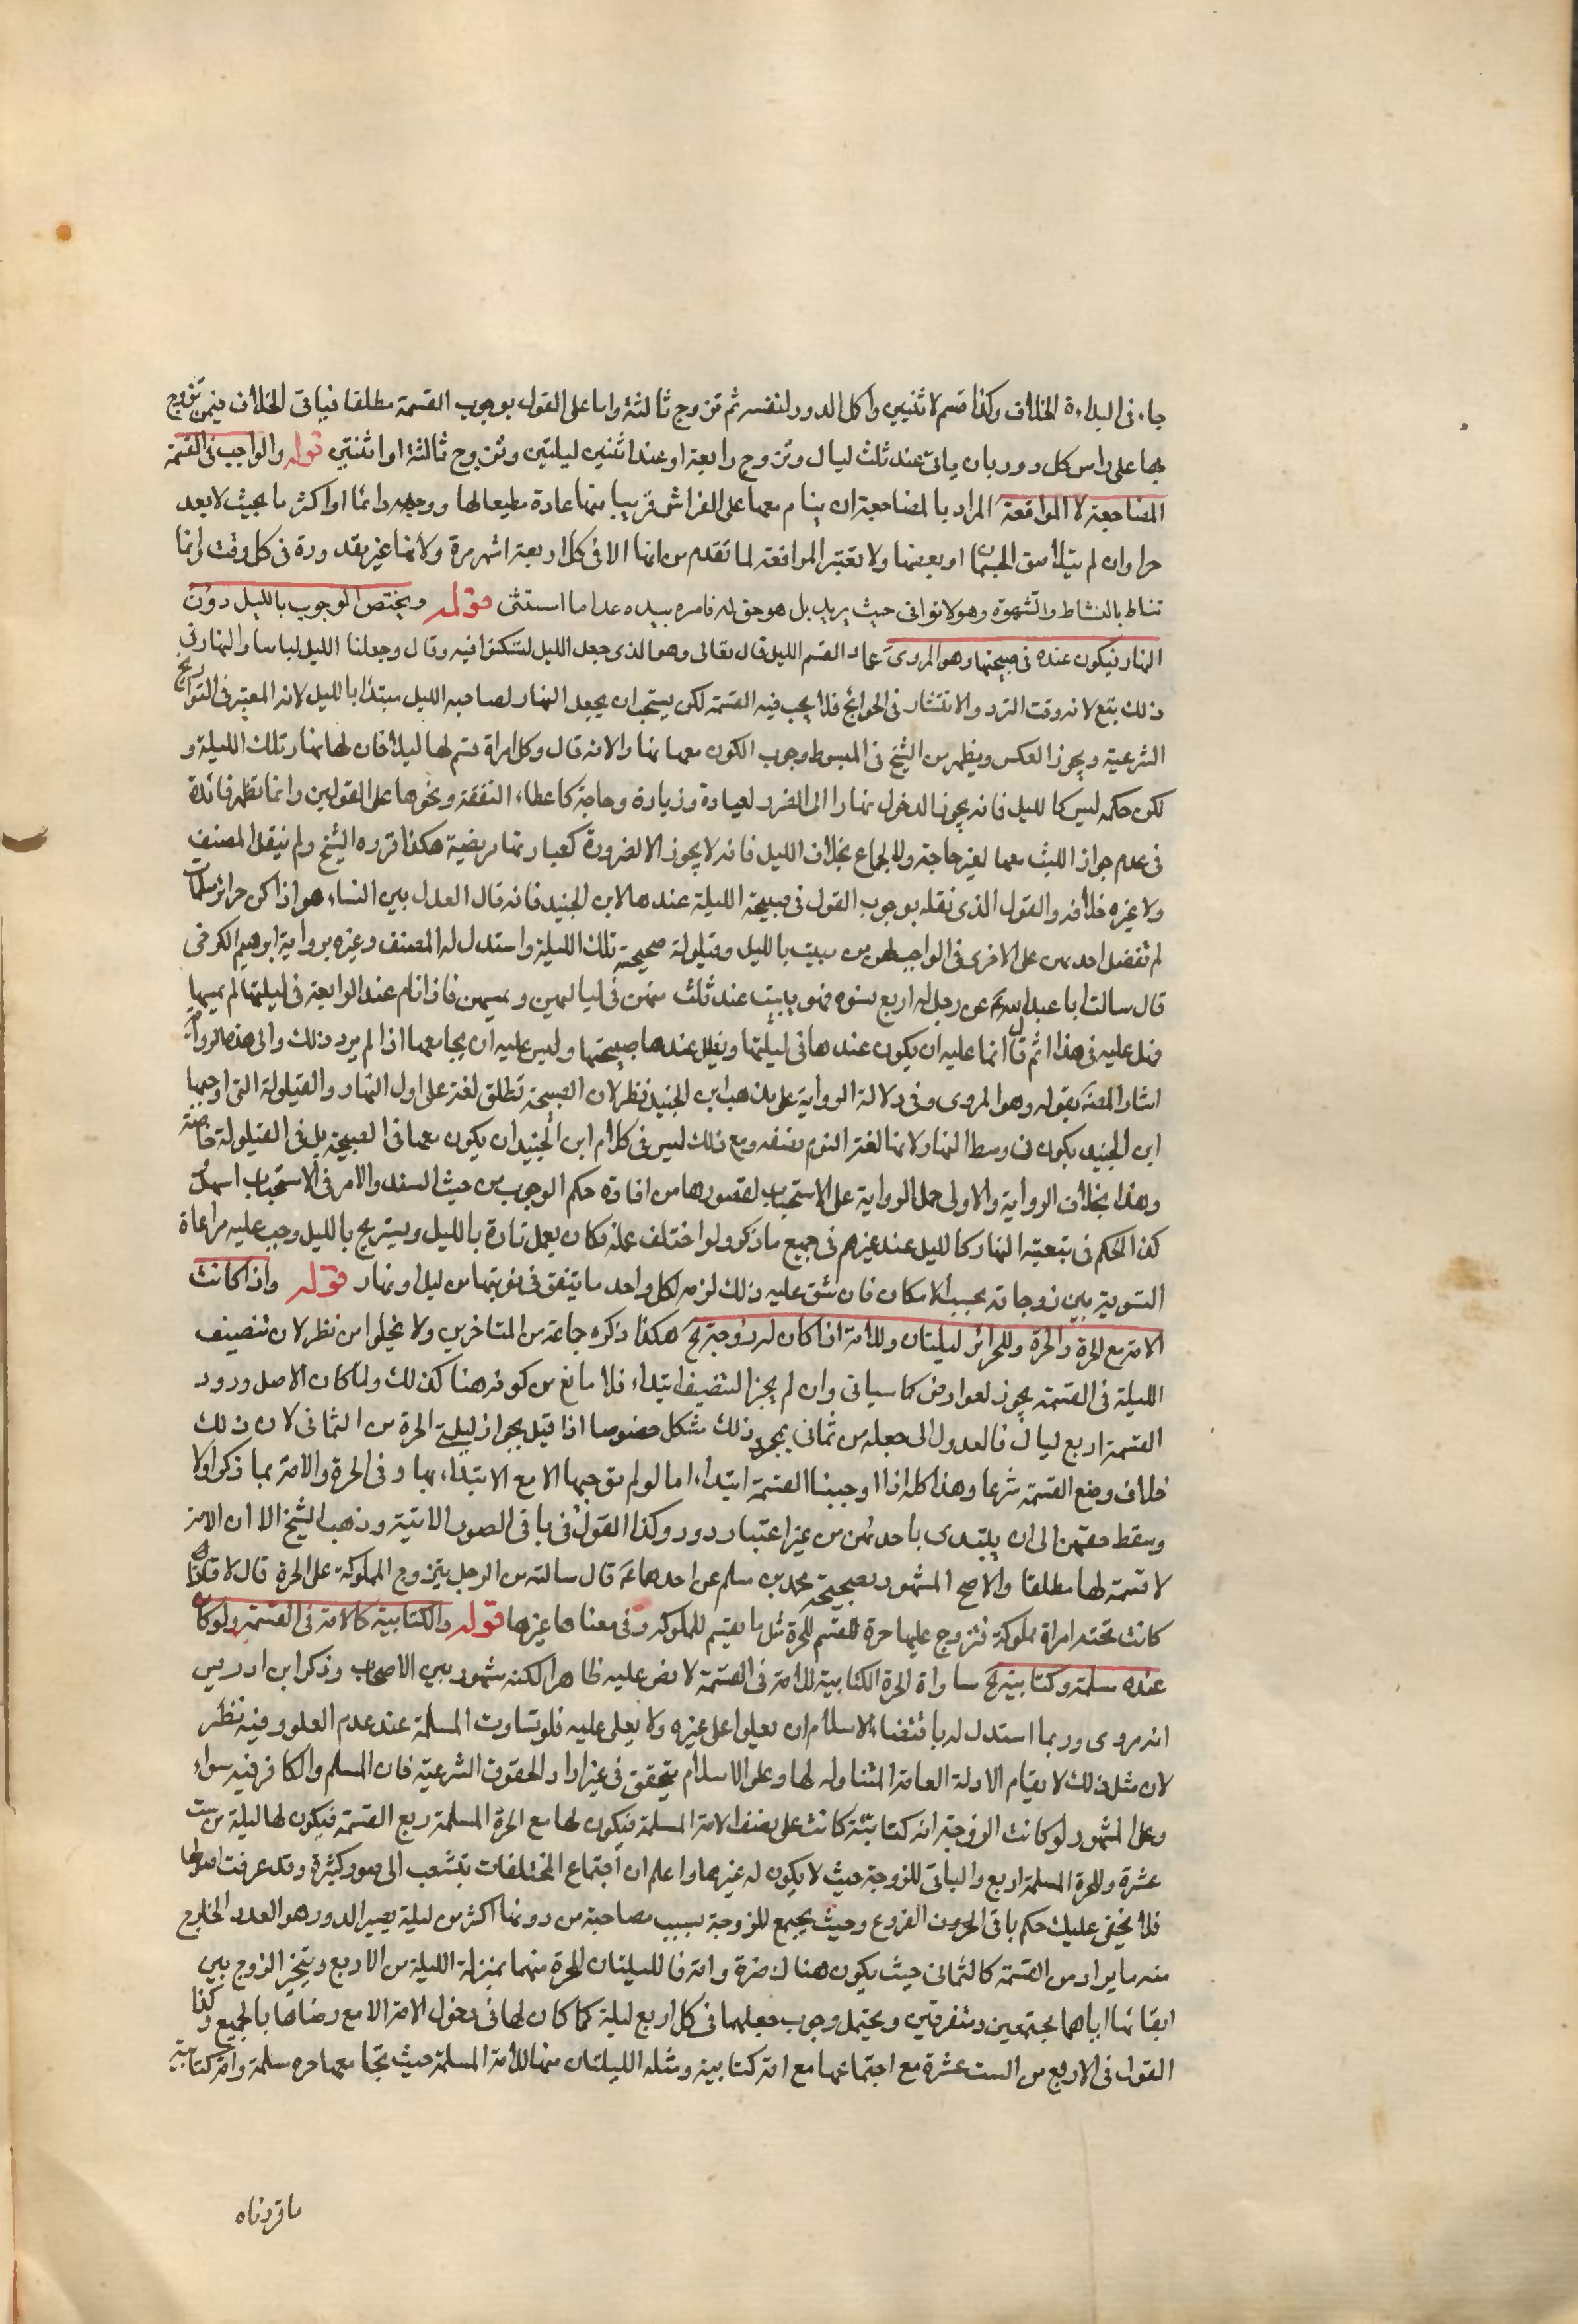 جاء فى البداءة الخلاف وكذا قسم لاثنيين واكل الدور لنفسه ثم تزوج ثالثة واما على القول بوجوب القسمة مطلقا فياتى الخلاف فيمن تزوج
بها على راس كل دور بان بات عند ثلث ليال وتزوج رابعة او عند اثنتين ليلتين وتزوج ثالثة او اثنتين قوله والواجب فى القسمة
المضاجعة لا المواقعة المراد بالمضاجعة ان ينام معها على الفراش قريبا منها عادة مطيعا لها ووجهه دائما او اكثر ما بحيث لا يعد
حرا وان لم يتلاصق الجسمان او بعضها ولا تعتبر المواقعة لما تقدم من انها الا فى كل اربعة اشهر مرة ولانها غير مقدورة فى كل وقت وانما
تناط بالنشاط والشهوة وهو لا توافى حيث يريد بل هو حق له فامره بيده عدا ما استثنى قوله ويختص الوجوب بالليل دون
النهار فيكون عنده فى صبيحتها وهو المروى عماد القسم الليل قال تعالى وهو الذى جعل الليل لتسكنوا فيه وقال وجعلنا الليل لباسا والنهار فى
ذلك يتبع لانه وقت التردد والانتشار فى الحوائج فلا يجب فيه القسمة لكن يستحب ان يجعل النهار لصاحبه الليل مبتدا بالليل لانه المعتبر فى التواريخ
الشرعية ويجوز العكس ويظهر من الشيخ فى المبسوط وجوب الكون معها نهارا لانه قال وكل امراة قسم لها ليلا فان لها نهار تلك الليلة و
لكن حكمه ليس كالليل فانه يجوز الدخول نهارا الى الضرة لعيادة وزيارة وحاجة كاعطاء النفقة ونحوها على القولين وانما تظهر فائدة
فى عدم جواز اللبث معها لغير حاجة ولا الجماع بخلاف الليل فانه لا يجوز الا لضرورة كعيادتها مريضة هكذا قرره الشيخ ولم ينقل المصنف
ولا غيره خلافه والقول الذى نقله بوجوب القول فى صبيحة الليلة عندها لابن الجنيد فانه قال العدل بين النساء هو اذا كن حرائر مسلمات
لم تفضل احدهن على الاخرى فى الواجب لهن من مبيت بالليل وقيلولة صحيحة تلك الليلة واستدل له المصنف وغيره برواية ابرهيم الكرخى
قال سالت ابا عبد الله ع عن رجل له اربع نسوة فهو يبيت عند ثلث منهن فى لياليهن ويمسهن فاذا نام عند الرابعة فى ليلتها لم يمسها
فهل عليه فى هذا اثم قال انما عليه ان يكون عندها فى ليلتها ويظل عندها صبيحتها وليس عليه ان يجامعها اذا لم يرد ذلك والى هذه الرواية
اشار المصنف بقوله وهو المروى وفى دلالة الرواية على مذهب ابن الجنيد نظر لان الصبيحة تطلق لغة على اول النهار والقيلولة التى اوجبها
ابن الجنيد يكون فى وسط النهار لانها لغة النوم نصفه ومع ذلك ليس فى كلام ابن الجنيد ان يكون معها فى الصبيحة بل فى القيلولة خاصة
وهذا بخلاف الرواية والاولى حمل الرواية على الاستحباب لقصورها من افادة حكم الوجوب من حيث السند والامر فى الاستحباب اسهل
كذا الحكم فى تبعية النهار كالليل عند غيرهم فى جميع ما ذكر ولو اختلف عمله فكان يعمل تارة بالليل ويستريح بالليل وجب عليه مراعاة
التسوية بين زوجاته بحسب الامكان فان شق عليه ذلك لزمه لكل واحد ما يتفق فى نوبتها من ليل او نهار قوله واذا كانت
الامة مع الحرة والحرة وللحرائر ليلتان وللامة اذا كان له زوجة الخ هكذا ذكره جماعة من المتاخرين ولا يخلوا من نظر لان تنصيف
الليلة فى القسمة يجوز لعوارض كما سياتى وان لم يجز التنصيف ابتداء فلا مانع من كونه هنا كذلك ولما كان الاصل ورود
القسمة اربع ليال فالعدول الى جعله من ثمانى بمجرد ذلك مشكل خصوصا اذا قيل بجواز ليلة الحرة من الثمانى لان ذلك
خلاف وضع القسمة شرعا وهذا كله اذا اوجبنا القسمة ابتداء اما لو لم نوجبها الا مع الابتداء بها وفى الحرة والامة بما ذكر اولا
وسقط حقهن الى ان يبتدى باحدهن من غير اعتبار دور وكذا القول فى باقى الصور الاتية وذهب الشيخ الا ان الامة
لا قسمة لها مطلقا والاصح المشهور لصحيحة محمد بن مسلم عن احدهما ع قال سالته من الرجل يتزوج المملوكة على الحرة قال لا فاذا
كانت تحته امراة مملوكة فتزوج عليها حرة قسم للحرة مثل ما يقسم للمملوكة وفى معناها غيرها قوله والكتابية كالامة فى القسمة ولو كان
عنده مسلمة وكتابية الخ مساواة الحرة الكتابية للامة فى القسمة لا نص عليه ظاهرا لكنه مشهور بين الاصحاب وذكر ابن ادريس
انه مروى وربما استدل له باقتضاء الاسلام ان يعلوا على غيره ولا يعلى عليه فلو تساوت المسلمة عند عدم العلو وفيه نظر
لان مثل ذلك لا يقاوم الادلة العامة المتناوله لها وعلو الاسلام يتحقق فى غير اداء الحقوق الشرعية فان المسلم والكافر فيه سواء
وعلى المشهور لو كانت الزوجة امة كتابية كانت على نصف الامة المسلمة فيكون لها مع الحرة المسلمة ربع القسمة فيكون لها ليلة من ست
عشرة وللحرة المسلمة اربع والباقى للزوجة حيث لا يكون له غيرها واعلم ان اجتماع المختلفات يتشعب الى صور كثيرة وقد عرفت اصولها
فلا يخفى عليك حكم باقى الفروع وحيث يجتمع للزوجة بسبب مصاحبة من دونها اكثر من ليلة يصير الدور هو العدد الخارج
منه ما يراد من القسمة كالثمانى حيث يكون هناك حرة وامة فالليلتان للحرة منهما بمنزلة الليلة من الاربع ويتخير الزوج بين
ايقائها اياهما مجتمعين ومتفرقين ويحتمل وجوب جعلهما فى كل اربع ليلة كما كان لها فى دخول الامة الا مع رضاها بالجميع وكذا
القول فى الاربع من الست عشرة مع اجتماعها مع امة كتابية ومثله الليلتان منها للامة المسلمة حيث تجامعها حره مسلمة وامة كتابية
ما قررناه